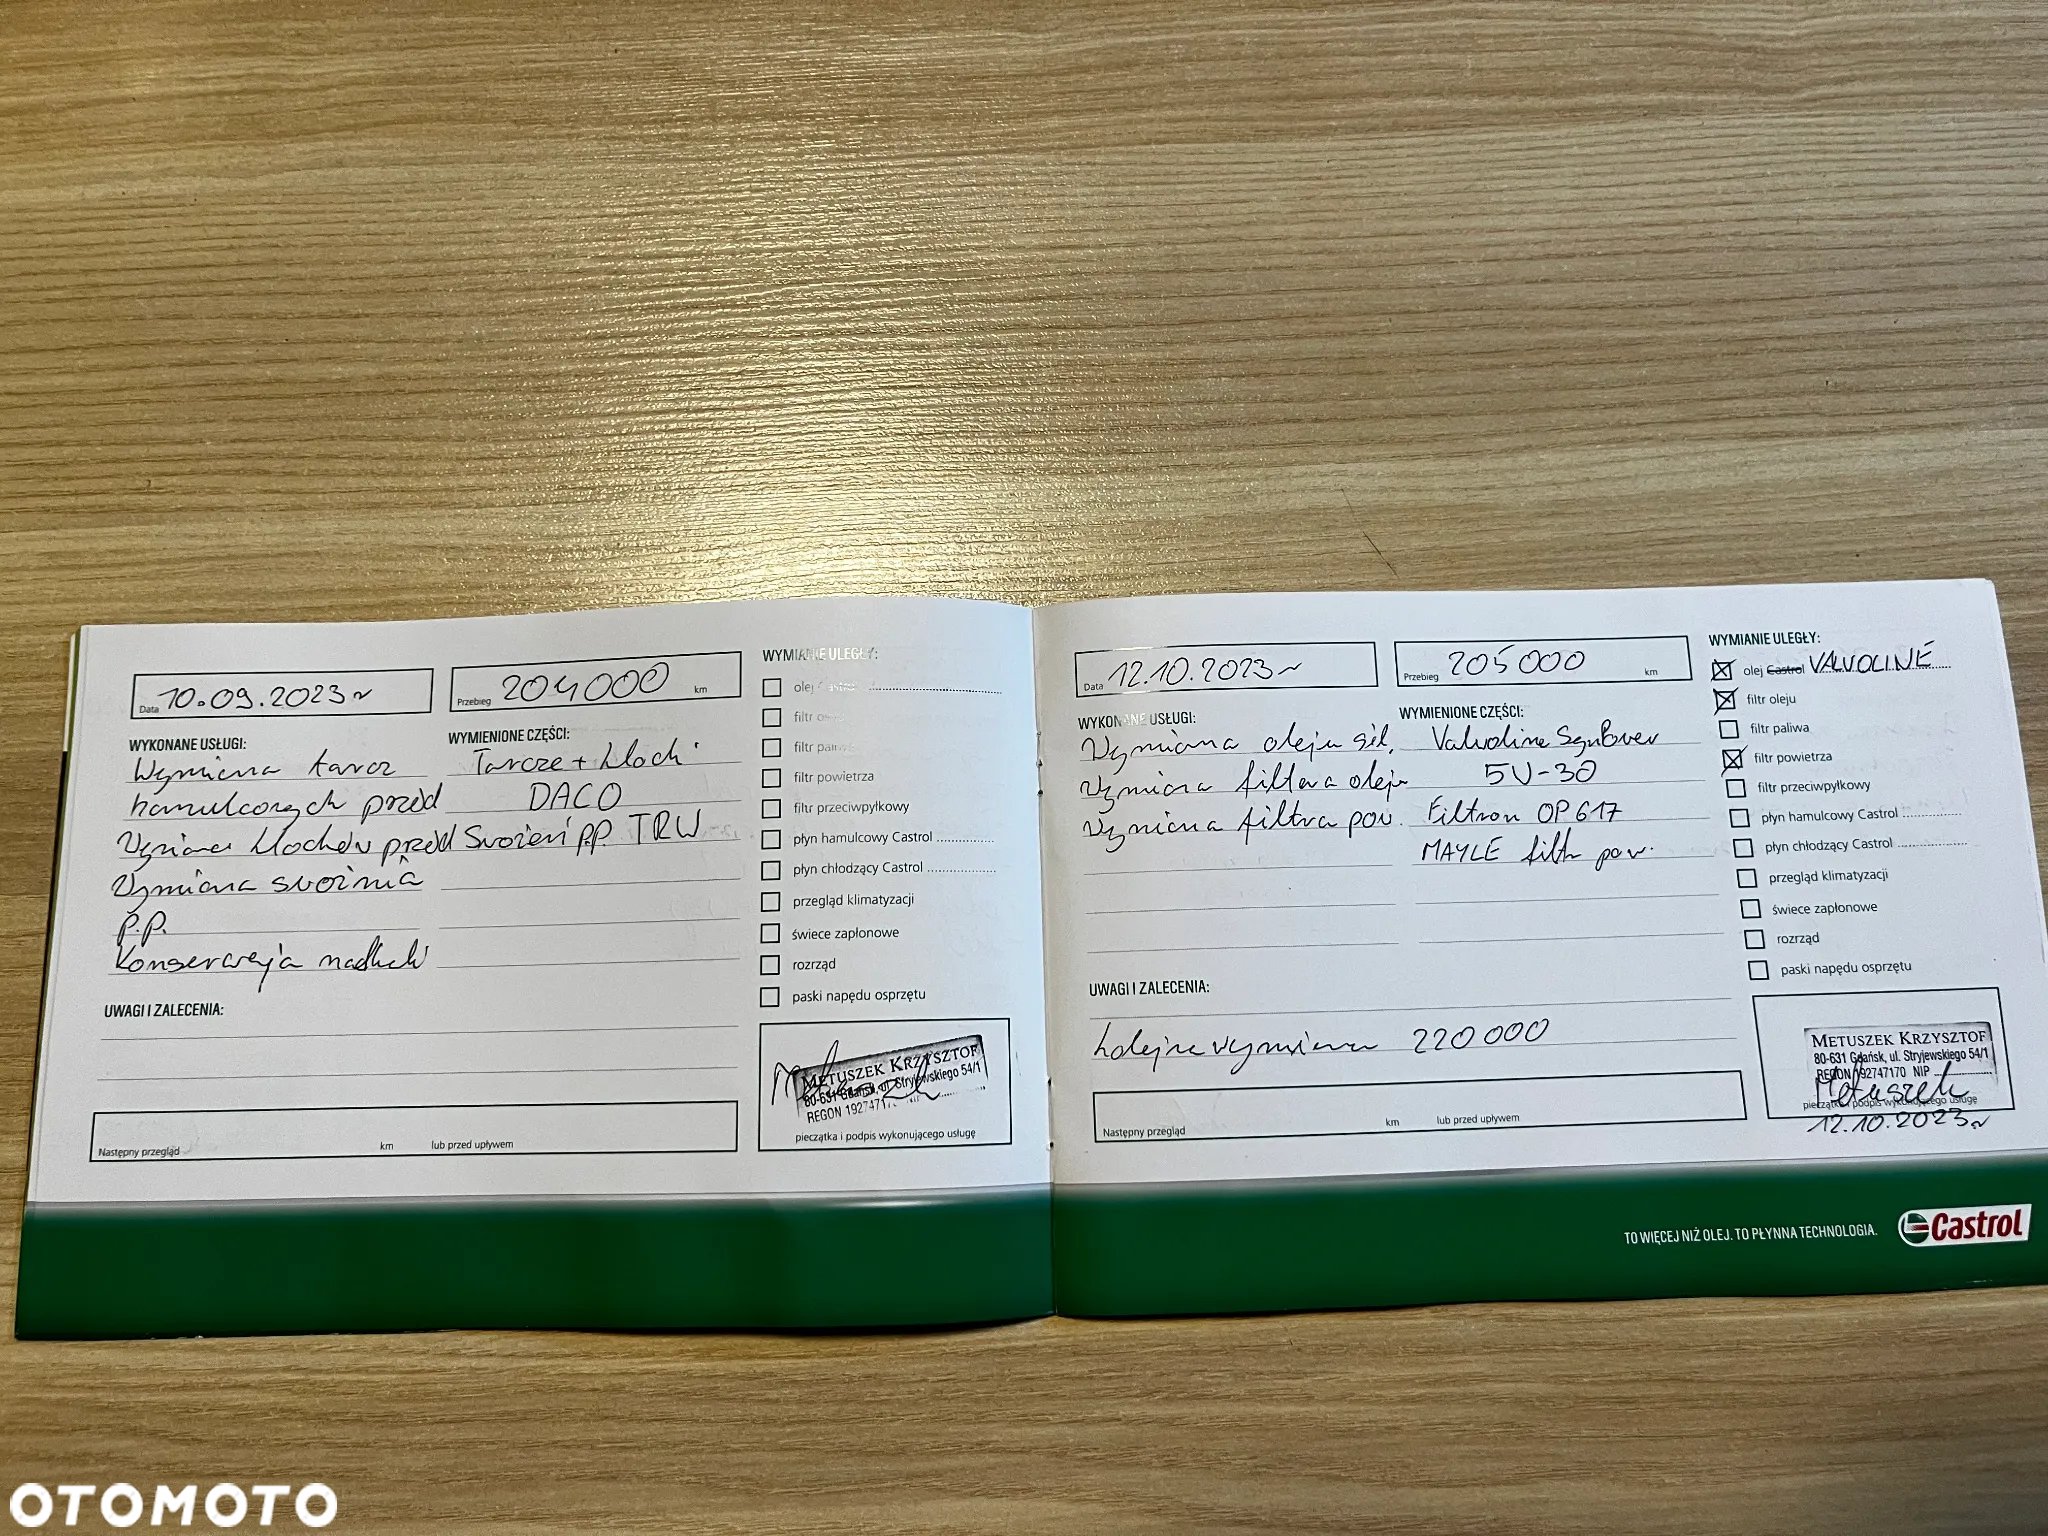 Data 10.09.2023r
Przebieg 204000 km
WYKONANE USŁUGI:
Wymiana tarcz
hamulcowych przód
Wymiana klocków przód
Wymiana sworznia
P.P.
Konserwacja nadkoli
WYMIENIONE CZĘŚCI:
Tarcze + klocki
DACO
Sworzeń P.P. TRW
UWAGI I ZALECENIA:
Następny przegląd km lub przed upływem
WYMIANIE ULEGŁY:
olej
filtr
filtr
filtr powietrza
filtr przeciwpyłkowy
płyn hamulcowy Castrol
płyn chłodzący Castrol
przegląd klimatyzacji
świece zapłonowe
rozrząd
paski napędu osprzętu
METUSZEK KRZYSZTOF
80-631 Gdańsk, ul. Stryjewskiego 54/1
REGON
pieczątka i podpis wykonującego usługę
Data 12.10.2023r
Przebieg 205000 km
WYKONANE USŁUGI:
Wymiana oleju sil.
Wymiana filtra oleju
Wymiana filtra pow.
WYMIENIONE CZĘŚCI:
Valvoline
5W-30
Filtron OP 617
MAYLE filtr pow.
UWAGI I ZALECENIA:
kolejna wymiana 220000
Następny przegląd km lub przed upływem
WYMIANIE ULEGŁY:
olej Castrol VALVOLINE
filtr oleju
filtr paliwa
filtr powietrza
filtr przeciwpyłkowy
płyn hamulcowy Castrol
płyn chłodzący Castrol
przegląd klimatyzacji
świece zapłonowe
rozrząd
paski napędu osprzętu
METUSZEK KRZYSZTOF
80-631 Gdańsk, ul. Stryjewskiego 54/1
REGON 192747170 NIP
Metuszek
pieczątka i podpis wykonującego usługę
12.10.2023r
TO WIĘCEJ NIŻ OLEJ. TO PŁYNNA TECHNOLOGIA.
Castrol
OTOMOTO